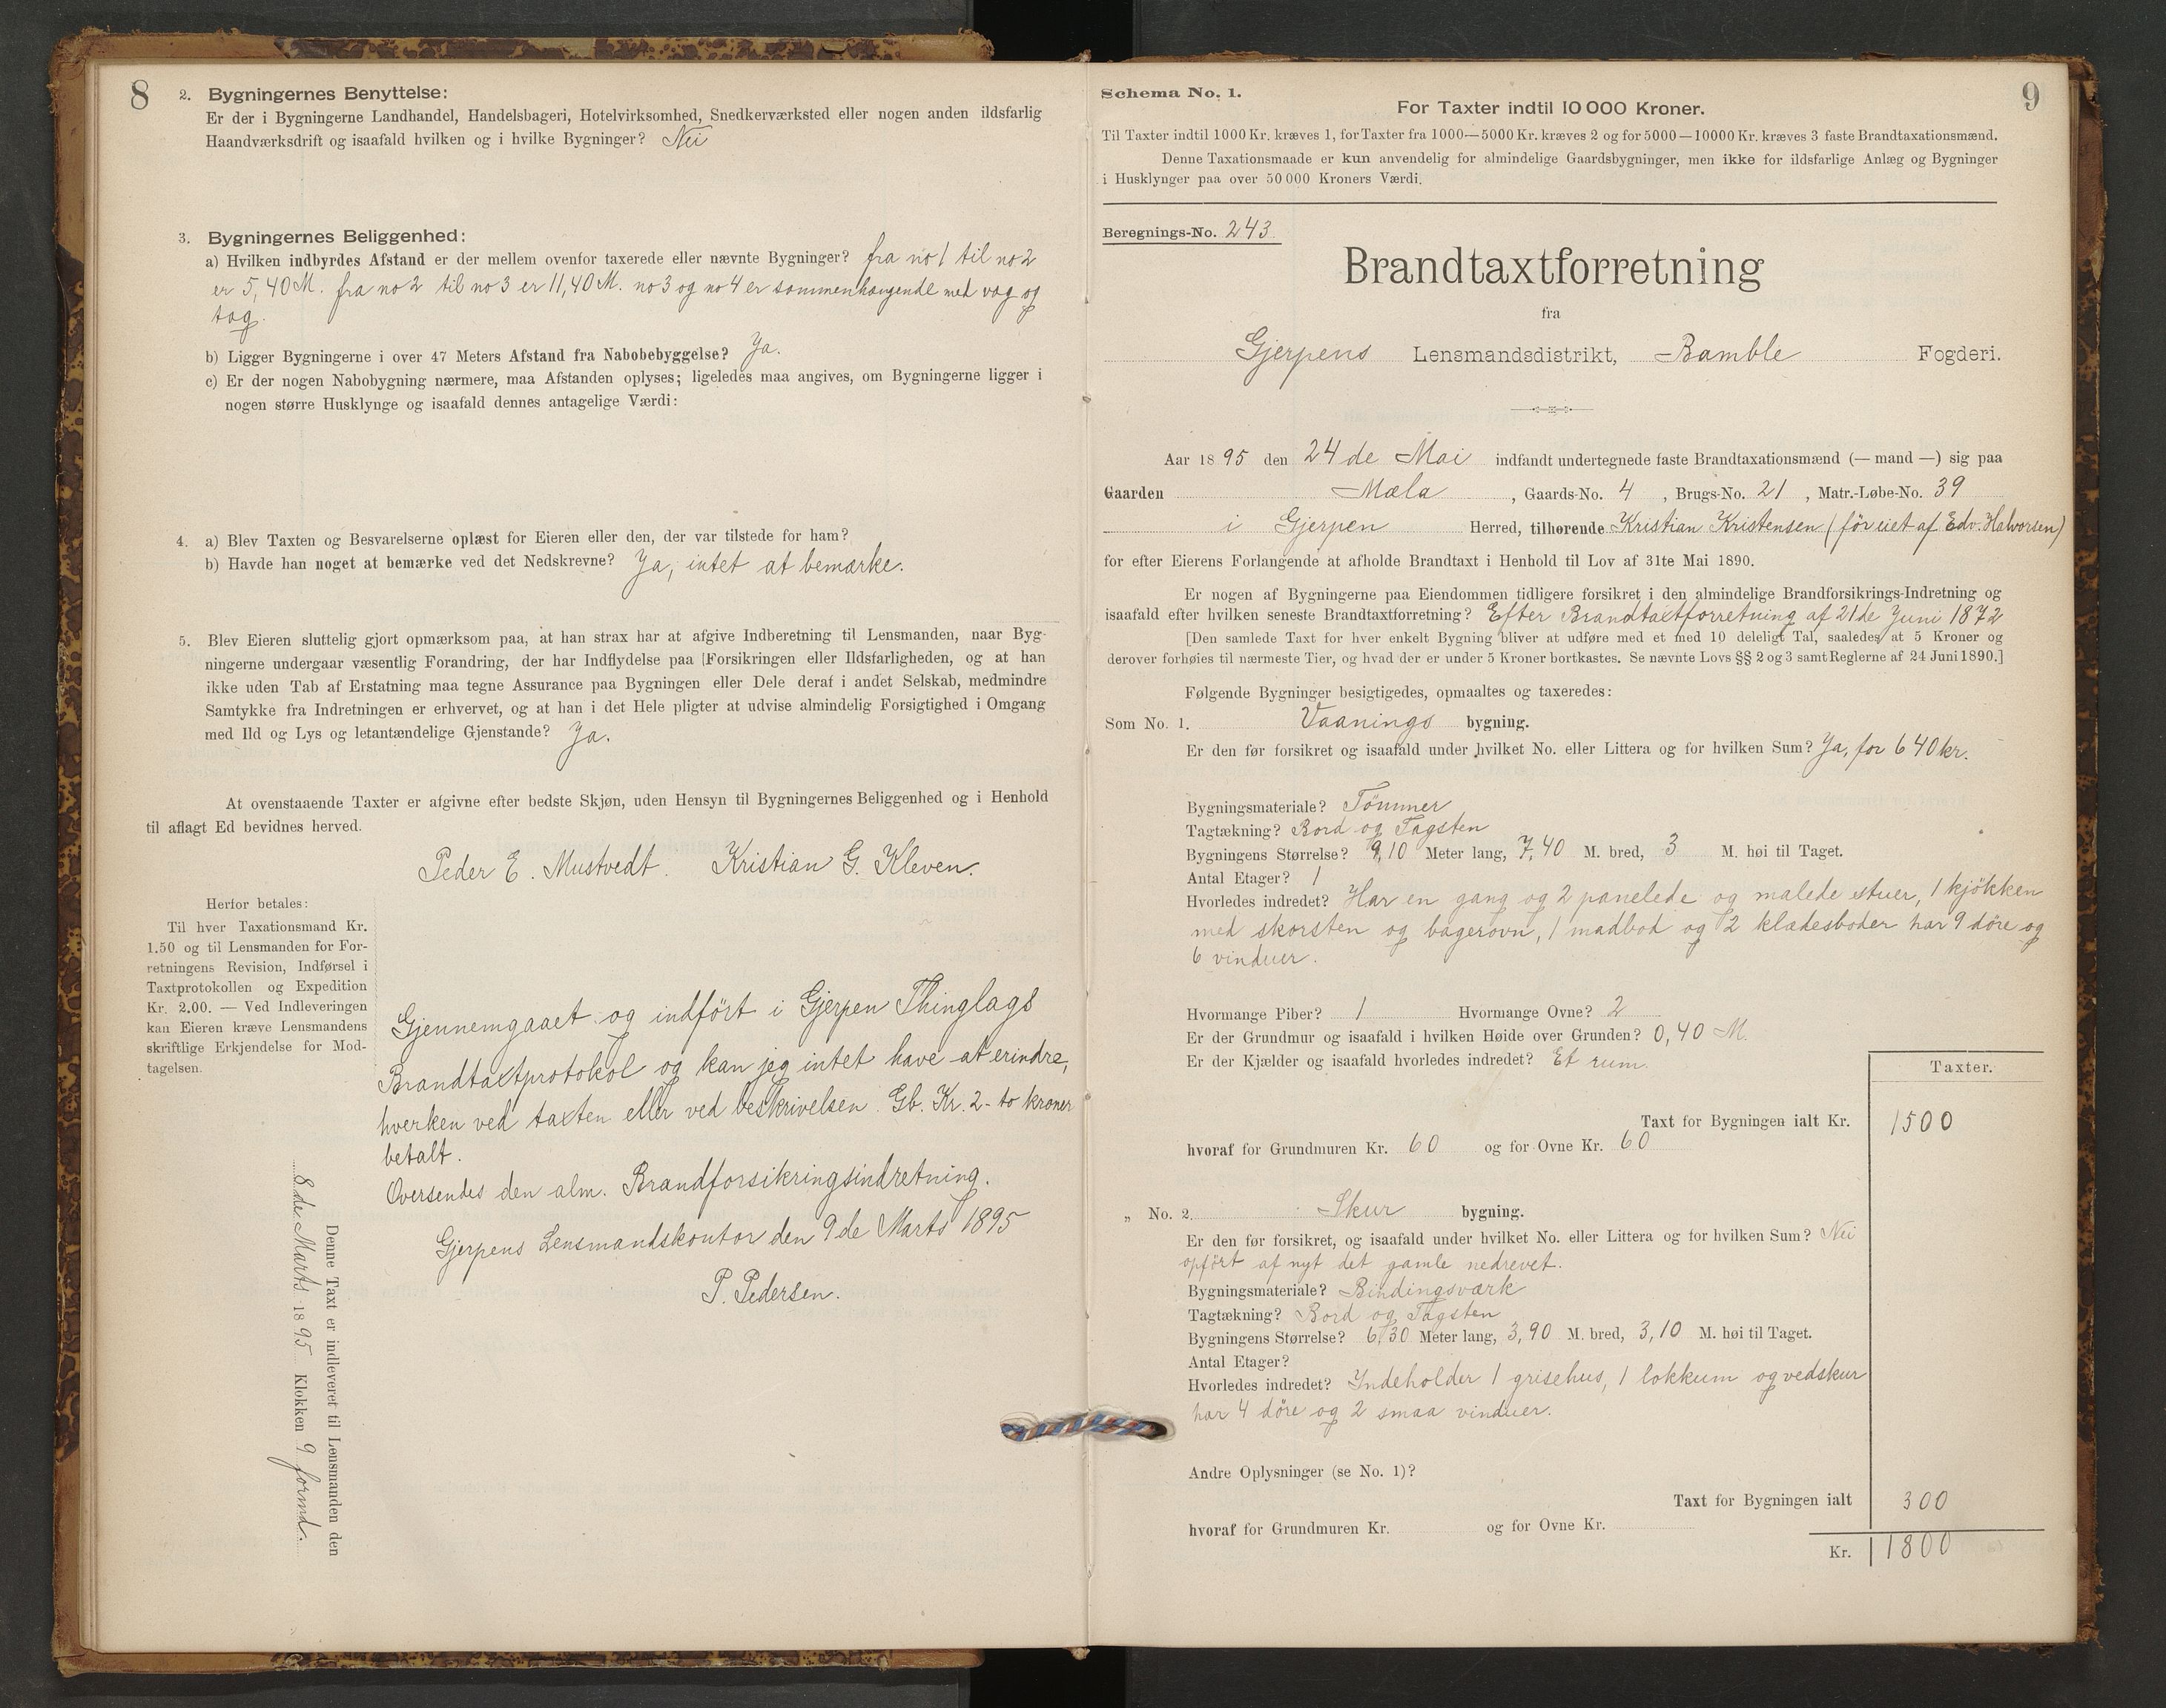 8
2. Bygningernes Benyttelse:
Er der i Bygningerne Landhandel, Handelsbageri, Hotelvirksomhed, Snedkerværksted eller nogen anden ildsfarlig
Haandværksdrift og isaafald hvilken og i hvilke Bygninger? Nei
3. Bygningernes Beliggenhed:
a) Hvilken indbyrdes Afstand er der mellem ovenfor taxerede eller nævnte Bygninger? fra no 1 til no 2
er 5,40 M. fra no 2 til no 3 er 11,40 M. no 3 og no 4 er sammenhængende med væg og
tag.
b) Ligger Bygningerne i over 47 Meters Afstand fra Nabobebyggelse? Ja.
c) Er der nogen Nabobygning nærmere, maa Afstanden oplyses; ligeledes maa angives, om Bygningerne ligger i
nogen større Husklynge og isaafald dennes antagelige Værdi:
4. a) Blev Taxten og Besvarelserne oplæst for Eieren eller den, der var tilstede for ham?
b) Havde han noget at bemærke ved det Nedskrevne? Ja, intet at bemærke.
5. Blev Eieren sluttelig gjort opmærksom paa, at han strax har at afgive Indberetning til Lensmanden, naar Byg-
ningerne undergaar væsentlig Forandring, der har Indflydelse paa Forsikringen eller Ildsfarligheden, og at han
ikke uden Tab af Erstatning maa tegne Assurance paa Bygningen eller Dele deraf i andet Selskab, medmindre
Samtykke fra Indretningen er erhvervet, og at han i det Hele pligter at udvise almindelig Forsigtighed i Omgang
med Ild og Lys og letantændelige Gjenstande? Ja.
At ovenstaaende Taxter er afgivne efter bedste Skjøn, uden Hensyn til Bygningernes Beliggenhed og i Henhold
til aflagt Ed bevidnes herved.
Peder E. Mustvedt. Kristian G. Kleven.
Herfor betales:
Til hver Taxationsmand Kr.
1.50 og til Lensmanden for For-
retningens Revision, Indførsel i
Taxtprotokollen og Expedition
Kr. 2.00. — Ved Indleveringen
kan Eieren kræve Lensmandens
skriftlige Erkjendelse for Mod-
tagelsen.
Gjennemgaaet og indført i Gjerpen Thinglags
Brandtaxtprotokol og kan jeg intet have at erindre,
hverken ved taxten eller ved beskrivelsen. Gb. Kr. 2 - to kroner
betalt.
Oversendes den alm. Brandforsikringsindretning.
Gjerpens Lensmandskontor den 9de Marts 1895
P. Pedersen.
Denne Taxt er indleveret til Lensmanden den
8de Marts 1895 Klokken 9 formd.
9
Schema No. 1.
For Taxter indtil 10 000 Kroner.
Til Taxter indtil 1000 Kr. kræves 1, for Taxter fra 1000—5000 Kr. kræves 2 og for 5000—10000 Kr. kræves 3 faste Brandtaxationsmænd.
Denne Taxationsmaade er kun anvendelig for almindelige Gaardsbygninger, men ikke for ildsfarlige Anlæg og Bygninger
i Husklynger paa over 50 000 Kroners Værdi.
Beregnings-No. 243
Brandtaxtforretning
fra
Gjerpens Lensmandsdistrikt, Bamble Fogderi.
Aar 1895 den 24de Mai indfandt undertegnede faste Brandtaxationsmænd (— mand —) sig paa
Gaarden Mæla, Gaards-No. 4, Brugs-No. 21, Matr.-Løbe-No. 39
i Gjerpen Herred, tilhørende Kristian Kristensen (før eiet af Edv. Halvorsen)
for efter Eierens Forlangende at afholde Brandtaxt i Henhold til Lov af 31te Mai 1890.
Er nogen af Bygningerne paa Eiendommen tidligere forsikret i den almindelige Brandforsikrings-Indretning og
isaafald efter hvilken seneste Brandtaxtforretning? Efter Brandtaxtforretning af 21de Juni 1872
[Den samlede Taxt for hver enkelt Bygning bliver at udføre med et med 10 deleligt Tal, saaledes at 5 Kroner og
derover forhøies til nærmeste Tier, og hvad der er under 5 Kroner bortkastes. Se nævnte Lovs §§ 2 og 3 samt Reglerne af 24 Juni 1890.]
Følgende Bygninger besigtigedes, opmaaltes og taxeredes:
Som No. 1. Vaanings bygning.
Er den før forsikret og isaafald under hvilket No. eller Littera og for hvilken Sum? Ja, for 640 kr.
Bygningsmateriale? Tømmer
Tagtækning? Bord og Tagsten
Bygningens Størrelse? 9,10 Meter lang, 7,40 M. bred, 3 M. høi til Taget.
Antal Etager? 1
Hvorledes indredet? Har en gang og 2 panelede og malede stuer, 1 kjøkken
med skorsten og bagerovn, 1 madbod og 2 klædesboder har 9 døre og
6 vinduer.
Hvormange Piber? 1 Hvormange Ovne? 2
Er der Grundmur og isaafald i hvilken Høide over Grunden? 0,40 M.
Er der Kjælder og isaafald hvorledes indredet? Et rum.
Taxter.
Taxt for Bygningen ialt Kr. 1500
hvoraf for Grundmuren Kr. 60 og for Ovne Kr. 60
„ No. 2. Skur bygning.
Er den før forsikret, og isaafald under hvilket No. eller Littera og for hvilken Sum? Nei
opført af nyt det gamle nedrevet.
Bygningsmateriale? Bindingsværk
Tagtækning? Bord og Tagsten
Bygningens Størrelse? 6,30 Meter lang, 3,90 M. bred, 3,10 M. høi til Taget.
Antal Etager?
Hvorledes indredet? Indeholder 1 grisehus, 1 lokkum og vedskur
har 4 døre og 2 smaa vinduer.
Andre Oplysninger (se No. 1)?
Taxt for Bygningen ialt 300
hvoraf for Grundmuren Kr. og for Ovne Kr.
Kr. 1800